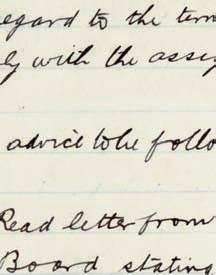 regard to the term
ly with the assig
advice to be follo
Read letter from
Board stating